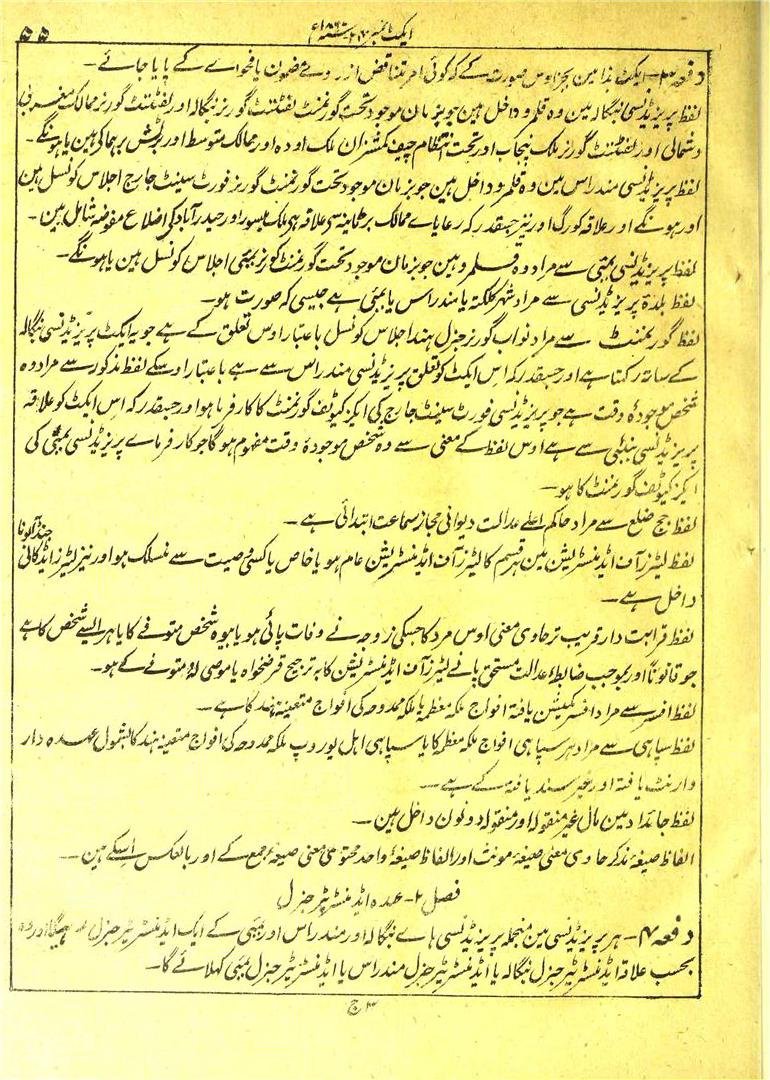 ایکٹ نمبر ۲۴ سنہ ۱۸۶۷ع
۵۵
دفعہ ۳ ـ ایکٹ ہذا مین بجز اوس صورت کے کہ کوئی امر تناقض از روے مضمون یا فحواے کے پایا جائے ـ
لفظ پریزیڈنسی بنگالہ مین وہ قلمرو داخل ہین جو بزمان موجود تحت گورنمنٹ لفٹنٹ گورنر بنگالہ اور لفٹنٹ گورنر ممالک مغربی
و شمالی اور لفٹنٹ گورنر ملک پنجاب اور تحت انتظام چیف کمشنران ملک اودہ اور ممالک متوسط اور برٹش برہما کی ہین یا ہونگے ـ
لفظ پریزیڈنسی مندراس مین وہ قلمرو داخل ہین جو بزمان موجود تحت گورنمنٹ گورنر فورٹ سینٹ جارج اجلاس کونسل ہین
اور ہونگے اور علاقہ کورگ اور نیز جسقدر کہ رعایاے ممالک برطانیہ سی علاقہ ہی ملک میسور اور حیدرآباد کی اضلاع مفوضہ شامل ہین ـ
لفظ پریزیڈنسی بمبئی سے مراد وہ قلمرو ہین جو بزمان موجود تحت گورنمنٹ گورنر بمبئی اجلاس کونسل ہین یا ہونگے ـ
لفظ بلدۂ پریزیڈنسی سے مراد شہر کلکتہ یا مندراس یا بمبئی ہے جیسی کہ صورت ہو ـ
لفظ گورنمنٹ سے مراد نواب گورنر جنرل ہند اجلاس کونسل باعتبار اوس تعلق کے ہے جو یہ ایکٹ پریزیڈنسی بنگالہ
کے ساتہ رکہتا ہے اور جسقدر کہ اس ایکٹ کو تعلق پریزیڈنسی مندراس سے ہے باعتبار اوسکے لفظ مذکور سے مراد وہ
شخص موجودۂ وقت ہے جو پریزیڈنسی فورٹ سینٹ جارج کی ایکزکیوٹف گورنمنٹ کا کارفرما ہو اور جسقدر کہ اس ایکٹ کو علاقہ
پریزیڈنسی بمبئی سے ہے اوس لفظ کے معنی سے وہ شخص موجودۂ وقت مفہوم ہوگا جو کارفرماے پریزیڈنسی بمبئی کی
ایکزکیوٹف گورنمنٹ کا ہو ـ
لفظ جج ضلع سے مراد حاکم اعلےٰ عدالت دیوانی مجاز سماعت ابتدائی ہے ـ
لفظ لیٹرز آف ایڈمنسٹریشن مین ہر قسم کا لیٹرز آف ایڈمنسٹریشن عام ہو یا خاص یا کسی وصیت سے منسلک ہو اور نیز لیٹرز ایڈکالی
جنڈا بونا
داخل ہے ـ
لفظ قرابت دار قریب تر حاوی معنی اوس مرد کا جسکی زوجہ نے وفات پائی ہو یا بیوہ شخص متوفے کا یا ہر ایسے شخص کا ہے
جو قانوناً اور بموجب ضابطۂ عدالت مستحق پانے لیٹرز آف ایڈمنسٹریشن کا بہ ترجیح قرضخواہ یا موصی لہٗ متوفے کے ہو ـ
لفظ افسر سے مراد افسر کمیشن یافتہ افواج ملکہ معظمہ یا ملکہ ممدوحہ کی افواج متعینہ ہند کا ہے ـ
لفظ سپاہی سے مراد ہر سپاہی افواج ملکہ معظمہ کا یا سپاہی اہل یوروپ ملکہ ممدوحہ کی افواج متعینہ ہند کا بشمول عہدہ دار
وارنٹ یافتہ اور غیر سند یافتہ کے ہے ـ
لفظ جائداد مین مال غیر منقولہ اور منقولہ دونون داخل ہین ـ
الفاظ صیغۂ مذکر حاوی معنی صیغۂ مونث اور الفاظ صیغۂ واحد محتوی معنی صیغۂ جمع کے اور بالعکس اسکے ہین ـ
فصل ۲ ـ عہدہ ایڈمنسٹریٹر جنرل
دفعہ ۴ ـ ہر پریزیڈنسی مین منجملہ پریزیڈنسی ہاے بنگالہ اور مندراس اور بمبئی کے ایک ایڈمنسٹریٹر جنرل رہیگا اور وہ
بحسب علاقہ ایڈمنسٹریٹر جنرل بنگالہ یا ایڈمنسٹریٹر جنرل مندراس یا ایڈمنسٹریٹر جنرل بمبئی کہلائے گا ـ